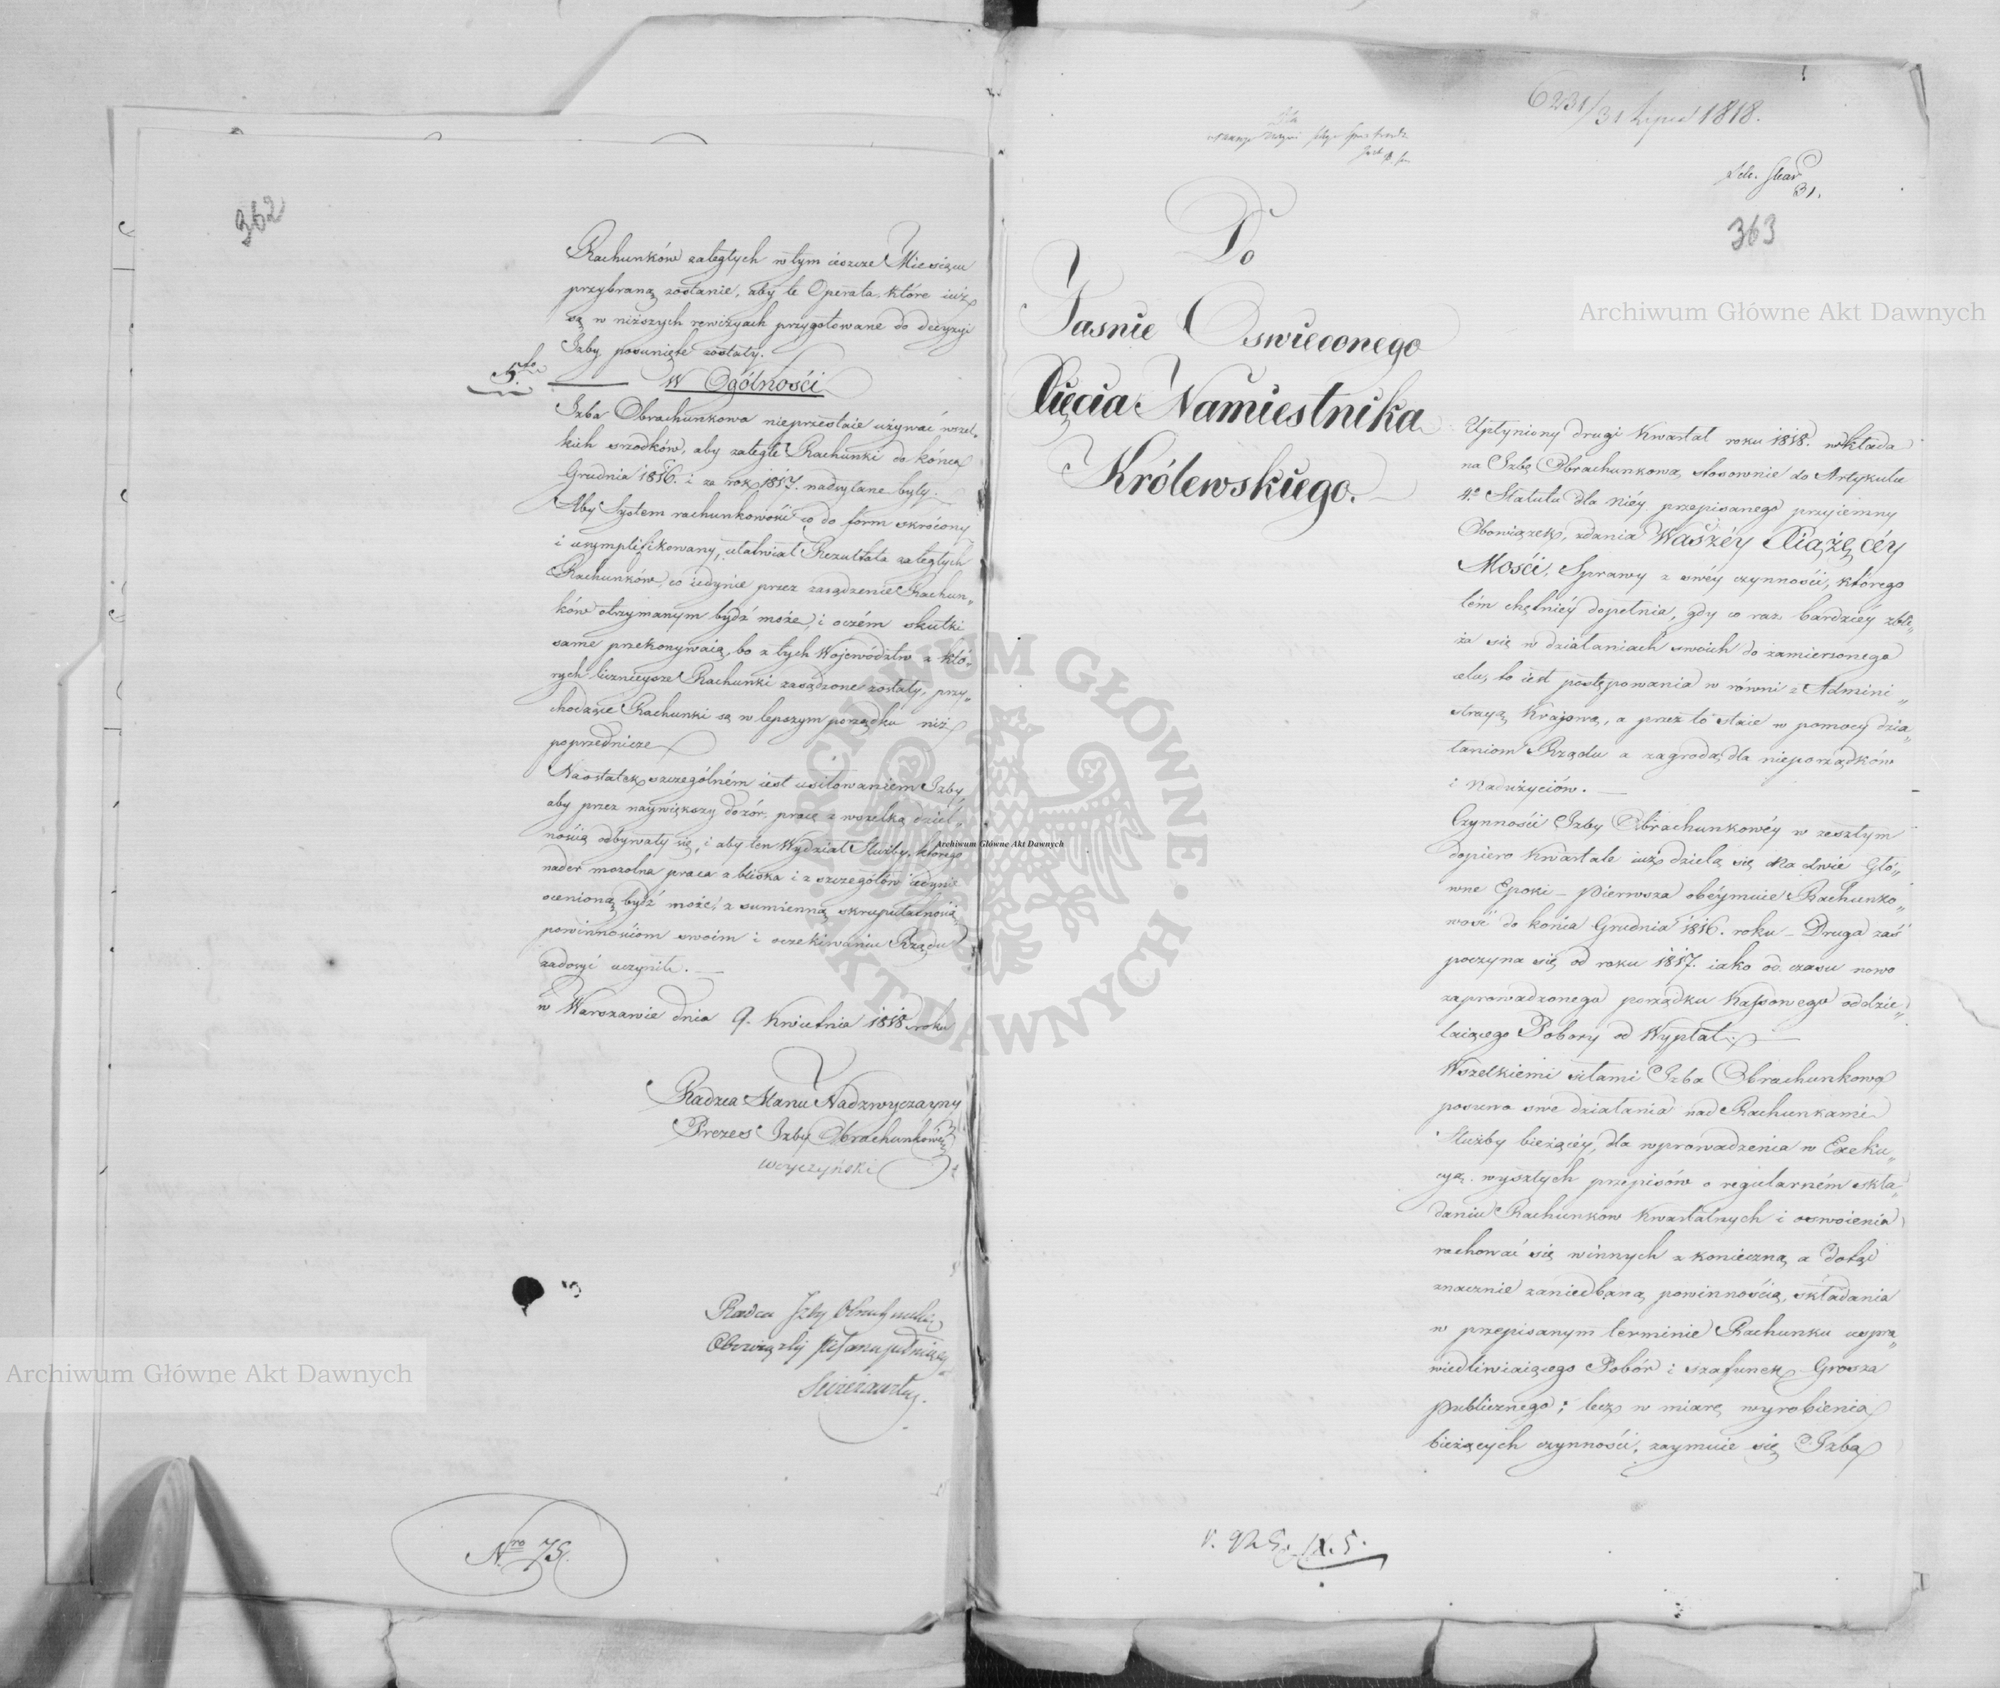 362
Rachunków zaległych w tym ieszcze Miesiącu
przybraną zostanie, aby te Operata, które iuż
są w niższych rewizyach przygotowane do decyzyi
Izby posunięte zostały.
5te
W Ogólności
Izba Obrachunkowa nieprzestaie używać wszel„
kich srzodków, aby zaległe Rachunki do końca
Grudnia 1816. i za rok 1817. nadsyłane były.
Aby System rachunkowości co do form skrócony
i usymplifikowany, ułatwiał Rezultata zaległych
Rachunków, co iedynie przez zasądzenie Rachun„
ków otrzymanym bydź może, i oczém skutki
same przekonywaią, bo z tych Woiewództw z któ„
rych licznieysze Rachunki zasądzone zostały, przy„
chodzące Rachunki są w lepszym porządku niż
poprzednicze
Naostatek szczególném iest usiłowaniem Izby
aby przez naywiększy dozór, prace z wszelką dziel„
nością odbywały się, i aby ten Wydział Służby, którego
nader mozolna praca z bliska i z szczegółów iedynie
ocenioną bydź może, z sumienną skrupulatnością
powinnościom swoim i oczekiwaniu Rządu
zadosyć uczynił.
w Warszawie dnia 9. Kwietnia 1818 roku
Radzca Stanu Nadzwyczayny
Prezes Izby Obrachunkowéy
Woyczyński
Radca Izby Obrachunkowéy
Obowiązki
Nro 75.
6231/31 Lipca 1818.
31.
363
Do
Jasnie Oswieconego
Xięcia Namiestnika
Królewskiego.
Upłyniony drugi Kwartał roku 1818. wkłada
na Izbę Obrachunkową, stosownie do Artykułu
4o Statutu dla niéy przepisanego przyiemny
Obowiązek, zdania Waszéy Xiążęcéy
Mości, Sprawy z swéy czynności, którego
tém chętniéy dopełnia, gdy co raz bardziéy zbli„
ża się w działaniach swoich do zamierzonego
celu, to iest postępowania w równi z Admini„
stracyą Kraiową, a przez to staie w pomocy dzia„
łaniom Rządu a zagrodą dla nieporządków
i Nadużyciów.
Czynności Izby Obrachunkowéy w zeszłym
dopiero Kwartale iuż dzielą się na dwie Głó„
wne Epoki – Pierwsza obéymuie Rachunko„
wość do końca Grudnia 1816. roku – Druga zaś
poczyna się od roku 1817. iako od czasu nowo
zaprowadzonego porządku Kassowego oddzie„
laiącego Pobory od Wypłat.
Wszelkiemi siłami Izba Obrachunkowa
posuwa swe działania nad Rachunkami
Służby bieżącéy, dla wprowadzenia w Exeku„
cyą wyszłych przepisów o regularném skła„
daniu Rachunków Kwartalnych i oswoienia
rachować się winnych z konieczną a dotąd
znacznie zaniedbaną powinnością, składania
w przepisanym terminie Rachunku uspra„
wiedliwiaiącego Pobór i szafunek Grosza
publicznego; lecz w miarę wyrobienia
bieżących czynności, zaymuie się Izba
Archiwum Główne Akt Dawnych
Archiwum Główne Akt Dawnych
Archiwum Główne Akt Dawnych
ARCHIWUM GŁÓWNE AKT DAWNYCH